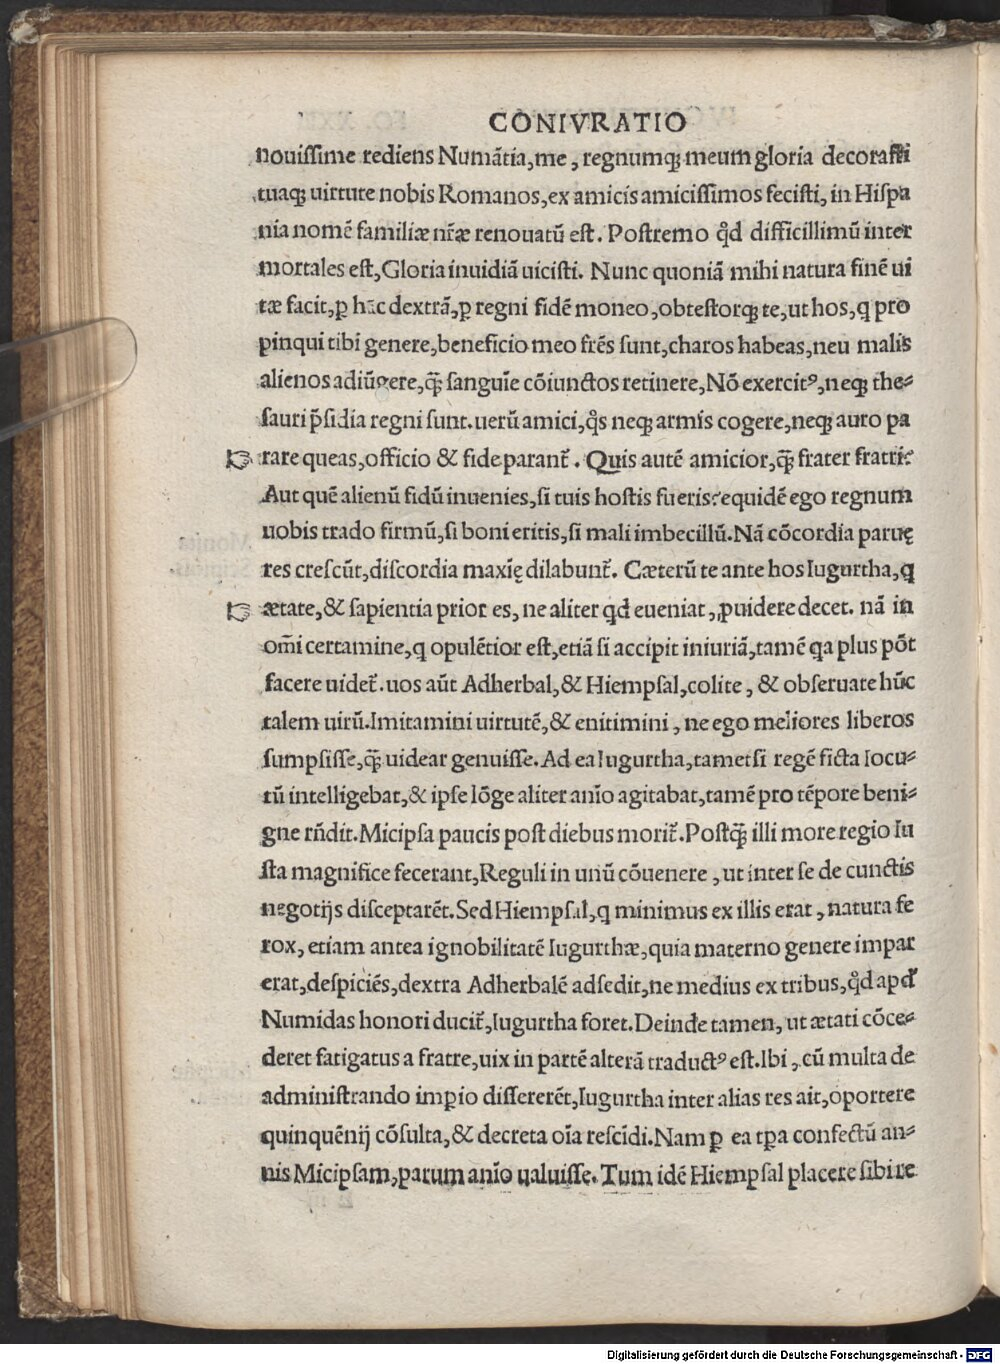 CONIVRATIO
nouissime rediens Numãtia, me, regnumq̃ meum gloria decorasti
tuaq̃ uirtute nobis Romanos, ex amicis amicissimos fecisti, in Hispa
nia nomẽ familiæ nr̃æ renouatũ est. Postremo qd̃ difficillimũ inter
mortales est, Gloria inuidiã uicisti. Nunc quoniã mihi natura finẽ ui
tæ facit, ꝑ hãc dextrã, ꝑ regni fidẽ moneo, obtestorq̃ te, ut hos, q pro
pinqui tibi genere, beneficio meo fr̃es sunt, charos habeas, neu malis
alienos adiũgere, q̃ sanguĩe cõiunctos retinere, Nõ exercitꝰ, neq̃ the⸗
sauri p̃sidia regni sunt. uerũ amici, q̊s neq̃ armis cogere, neq̃ auro pa
☞ rare queas, officio & fide parant̃. Quis autẽ amicior, q̃ frater fratri?
Aut quẽ alienũ fidũ inuenies, si tuis hostis fueris? equidẽ ego regnum
uobis trado firmũ, si boni eritis, si mali imbecillũ. Nã cõcordia paruę
res crescũt, discordia maxĩę dilabunt̃. Cæterũ te ante hos Iugurtha, q
☞ ætate, & sapientia prior es, ne aliter qd eueniat, ꝓuidere decet. nã in
om̃i certamine, q opulẽtior est, etiã si accipit iniuriã, tamẽ qa plus põt
facere uidet̃. uos aũt Adherbal, & Hiempsal, colite, & obseruate hũc
talem uirũ. Imitamini uirtutẽ, & enitimini, ne ego meliores liberos
sumpsisse, q̃ uidear genuisse. Ad ea Iugurtha, tametsi regẽ ficta locu⸗
tũ intelligebat, & ipse lõge aliter anĩo agitabat, tamẽ pro tẽpore beni⸗
gne rñdit. Micipsa paucis post diebus morit̃. Postq̃ illi more regio Iu
sta magnifice fecerant, Reguli in unũ cõuenere, ut inter se de cunctis
negotijs disceptarẽt. Sed Hiempsal, q minimus ex illis erat, natura fe
rox, etiam antea ignobilitatẽ Iugurthæ, quia materno genere impar
erat, despiciẽs, dextra Adherbalẽ adsedit, ne medius ex tribus, qd̃ apd̃
Numidas honori ducit̃, Iugurtha foret. Deinde tamen, ut ætati cõce⸗
deret fatigatus a fratre, uix in partẽ alterã traductꝰ est. Ibi, cũ multa de
administrando imꝑio dissererẽt, Iugurtha inter alias res ait, oportere
quinquẽnij cõsulta, & decreta oĩa rescĩdi. Nam ꝑ ea tꝑa confectũ an⸗
nis Micipsam, parum anĩo ualuisse. Tum idẽ Hiempsal placere sibi re
Digitalisierung gefördert durch die Deutsche Forschungsgemeinschaft - DFG